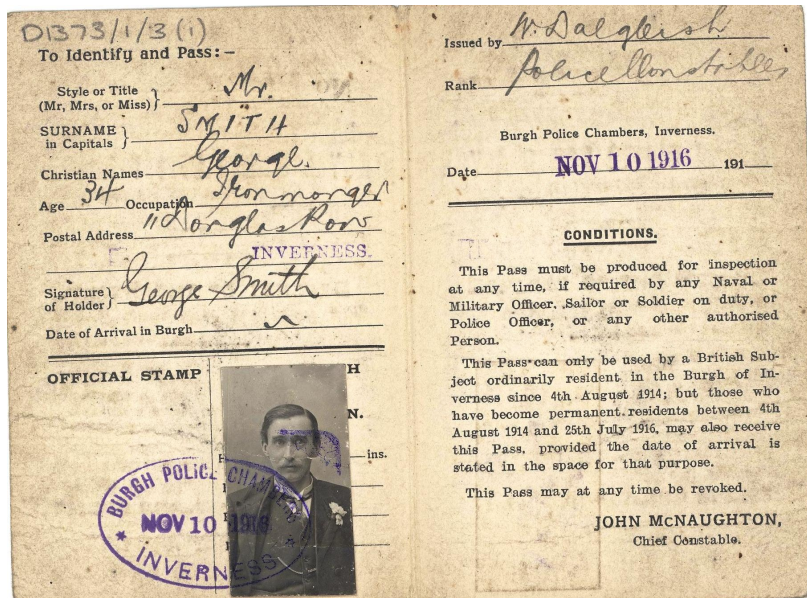 D1373/1/3 (1)
To Identify and Pass:-
Style or Title
(Mr, Mrs, or Miss) } Mr.
SURNAME
in Capitals } SMITH
Christian Names George.
Age 34 Occupation Ironmonger
Postal Address 11 Douglas Row
INVERNESS.
Signature
of Holder } George Smith
Date of Arrival in Burgh
OFFICIAL STAMP
H
N.
ins.
BURGH POLICE CHAMBERS
NOV 10 1916
INVERNESS
Issued by W. Dalgleish
Rank Police Constable
Burgh Police Chambers, Inverness.
Date NOV 10 1916 191
CONDITIONS.
This Pass must be produced for inspection
at any time, if required by any Naval or
Military Officer, Sailor or Soldier on duty, or
Police Officer, or any other authorised
Person.
This Pass can only be used by a British Sub-
ject ordinarily resident in the Burgh of In-
verness since 4th August 1914; but those who
have become permanent residents between 4th
August 1914 and 25th July 1916, may also receive
this Pass, provided the date of arrival is
stated in the space for that purpose.
This Pass may at any time be revoked.
JOHN McNAUGHTON,
Chief Constable.